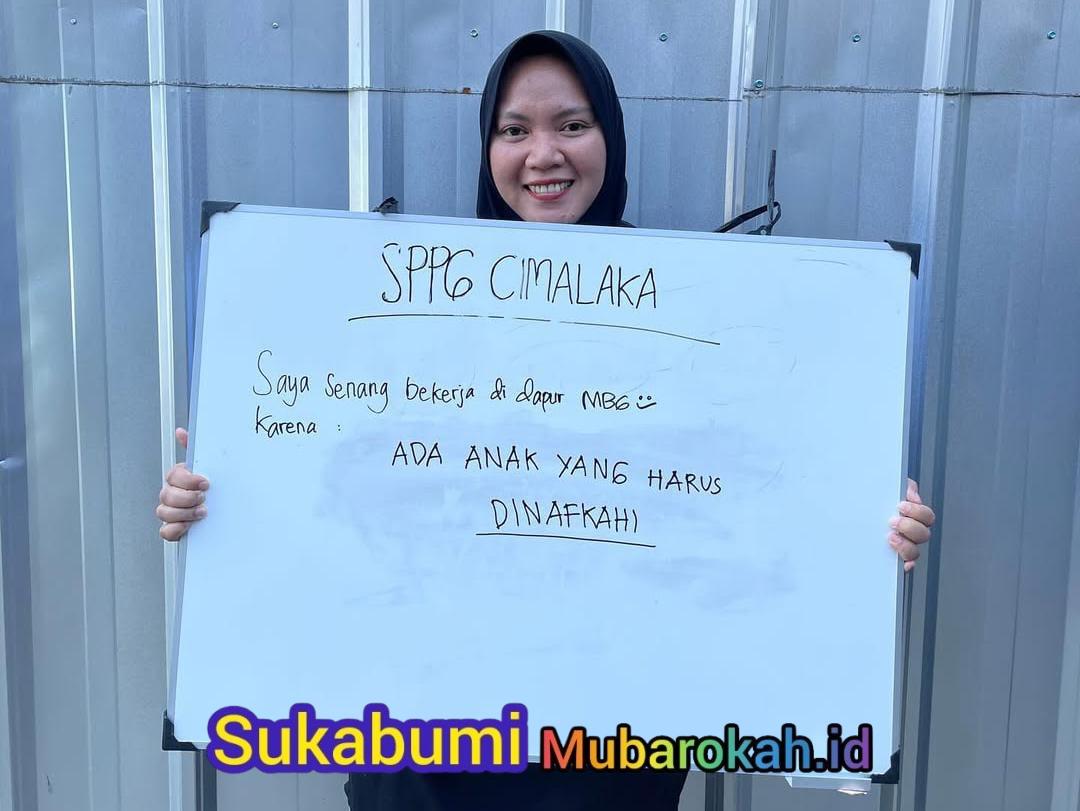 SPPG CIMALAKA
Saya senang bekerja di dapur MBG
karena :
ADA ANAK YANG HARUS
DINAFKAHI
Sukabumi Mubarokah.id